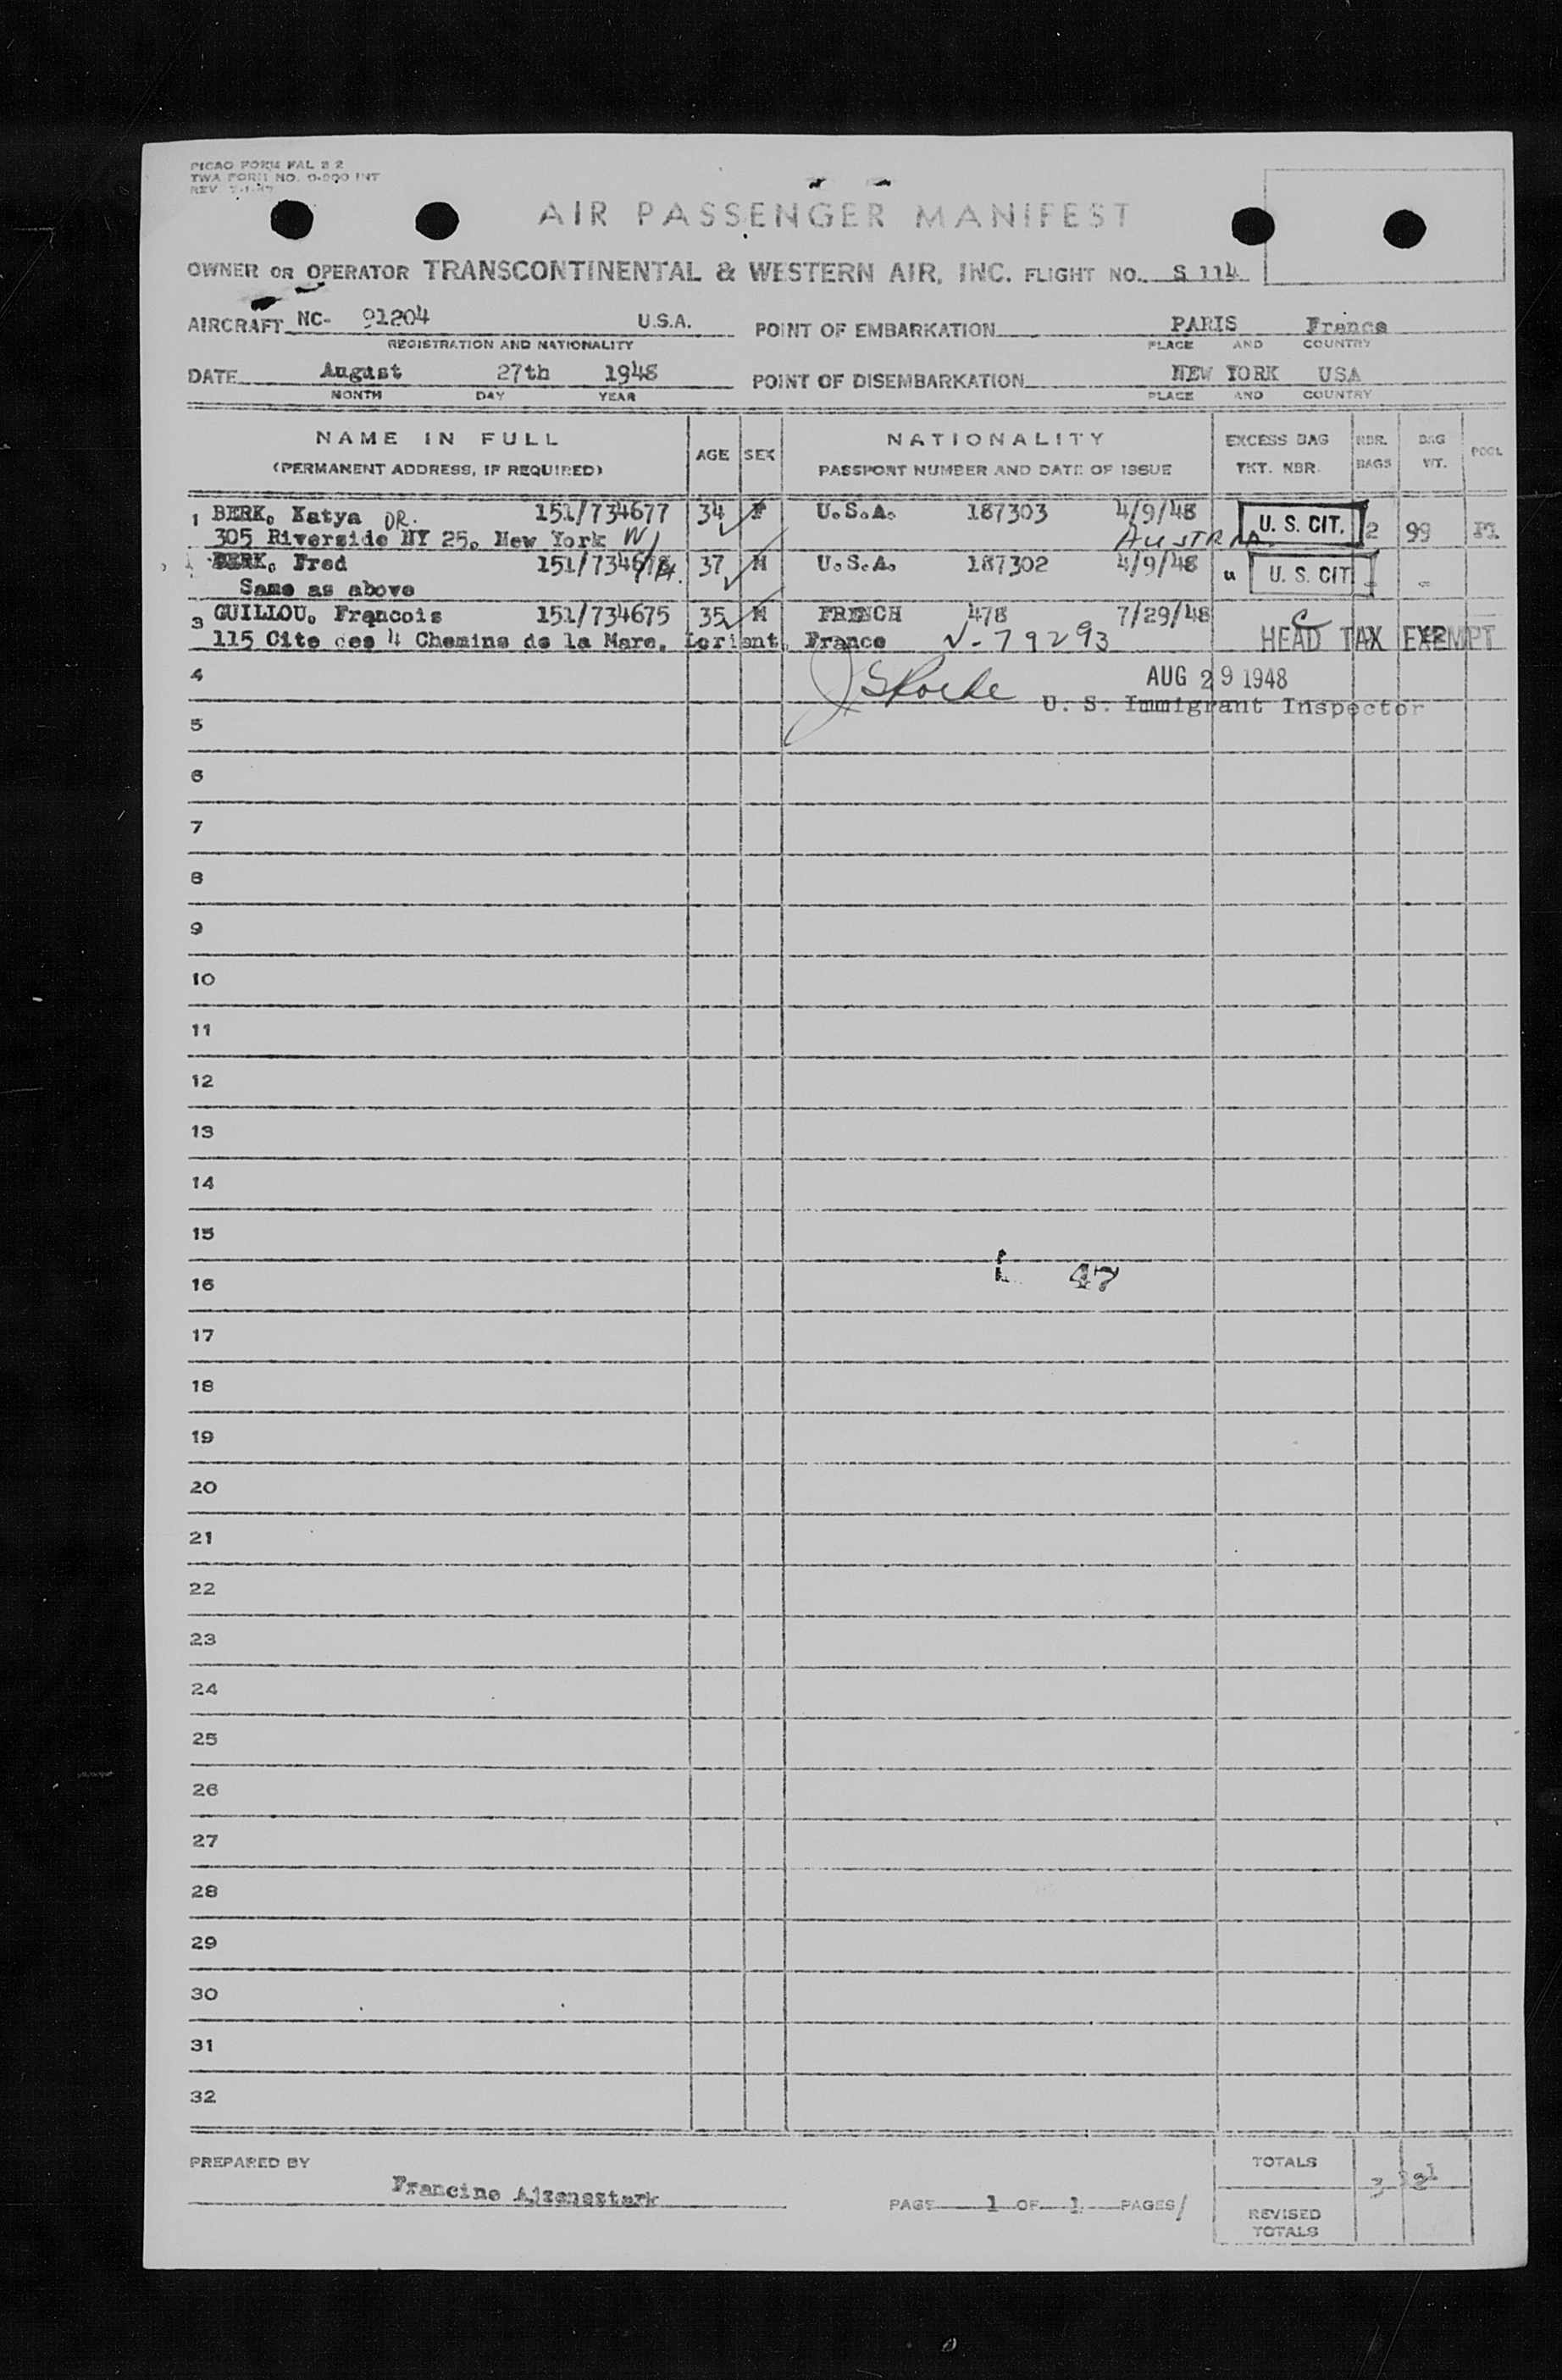 PICAO FORM FAL B 2
TWA FORM NO. 0-200 INT
REV
AIR PASSENGER MANIFEST
OWNER OR OPERATOR TRANSCONTINENTAL & WESTERN AIR, INC. FLIGHT NO. S 114
AIRCRAFT NC- 91204 U.S.A. POINT OF EMBARKATION PARIS France
REGISTRATION AND NATIONALITY PLACE AND COUNTRY
DATE August 27th 1948 POINT OF DISEMBARKATION NEW YORK USA
MONTH DAY YEAR PLACE AND COUNTRY
NAME IN FULL AGE SEX NATIONALITY EXCESS BAG NBR. BAG POOL
(PERMANENT ADDRESS, IF REQUIRED) PASSPORT NUMBER AND DATE OF ISSUE TKT. NBR. BAGS WT.
1 BERK, Katya DR. 151/734677 34 F U.S.A. 187303 4/9/48 U. S. CIT. 2 99
305 Riverside NY 25, New York W/ AUSTRIA
BERK, Fred 151/734678 37 M U.S.A. 187302 4/9/48 " U. S. CIT - -
Same as above
3 GUILLOU, Francois 151/734675 35 M FRENCH 478 7/29/48
115 Cite des 4 Chemins de la Mare, Lorient, France V-79293 HEAD TAX EXEMPT
4 AUG 29 1948
U. S. Immigrant Inspector
5
6
7
8
9
10
11
12
13
14
15
16 47
17
18
19
20
21
22
23
24
25
26
27
28
29
30
31
32
PREPARED BY TOTALS 3
Francine Ajzenestark PAGE 1 OF 1 PAGES
REVISED
TOTALS